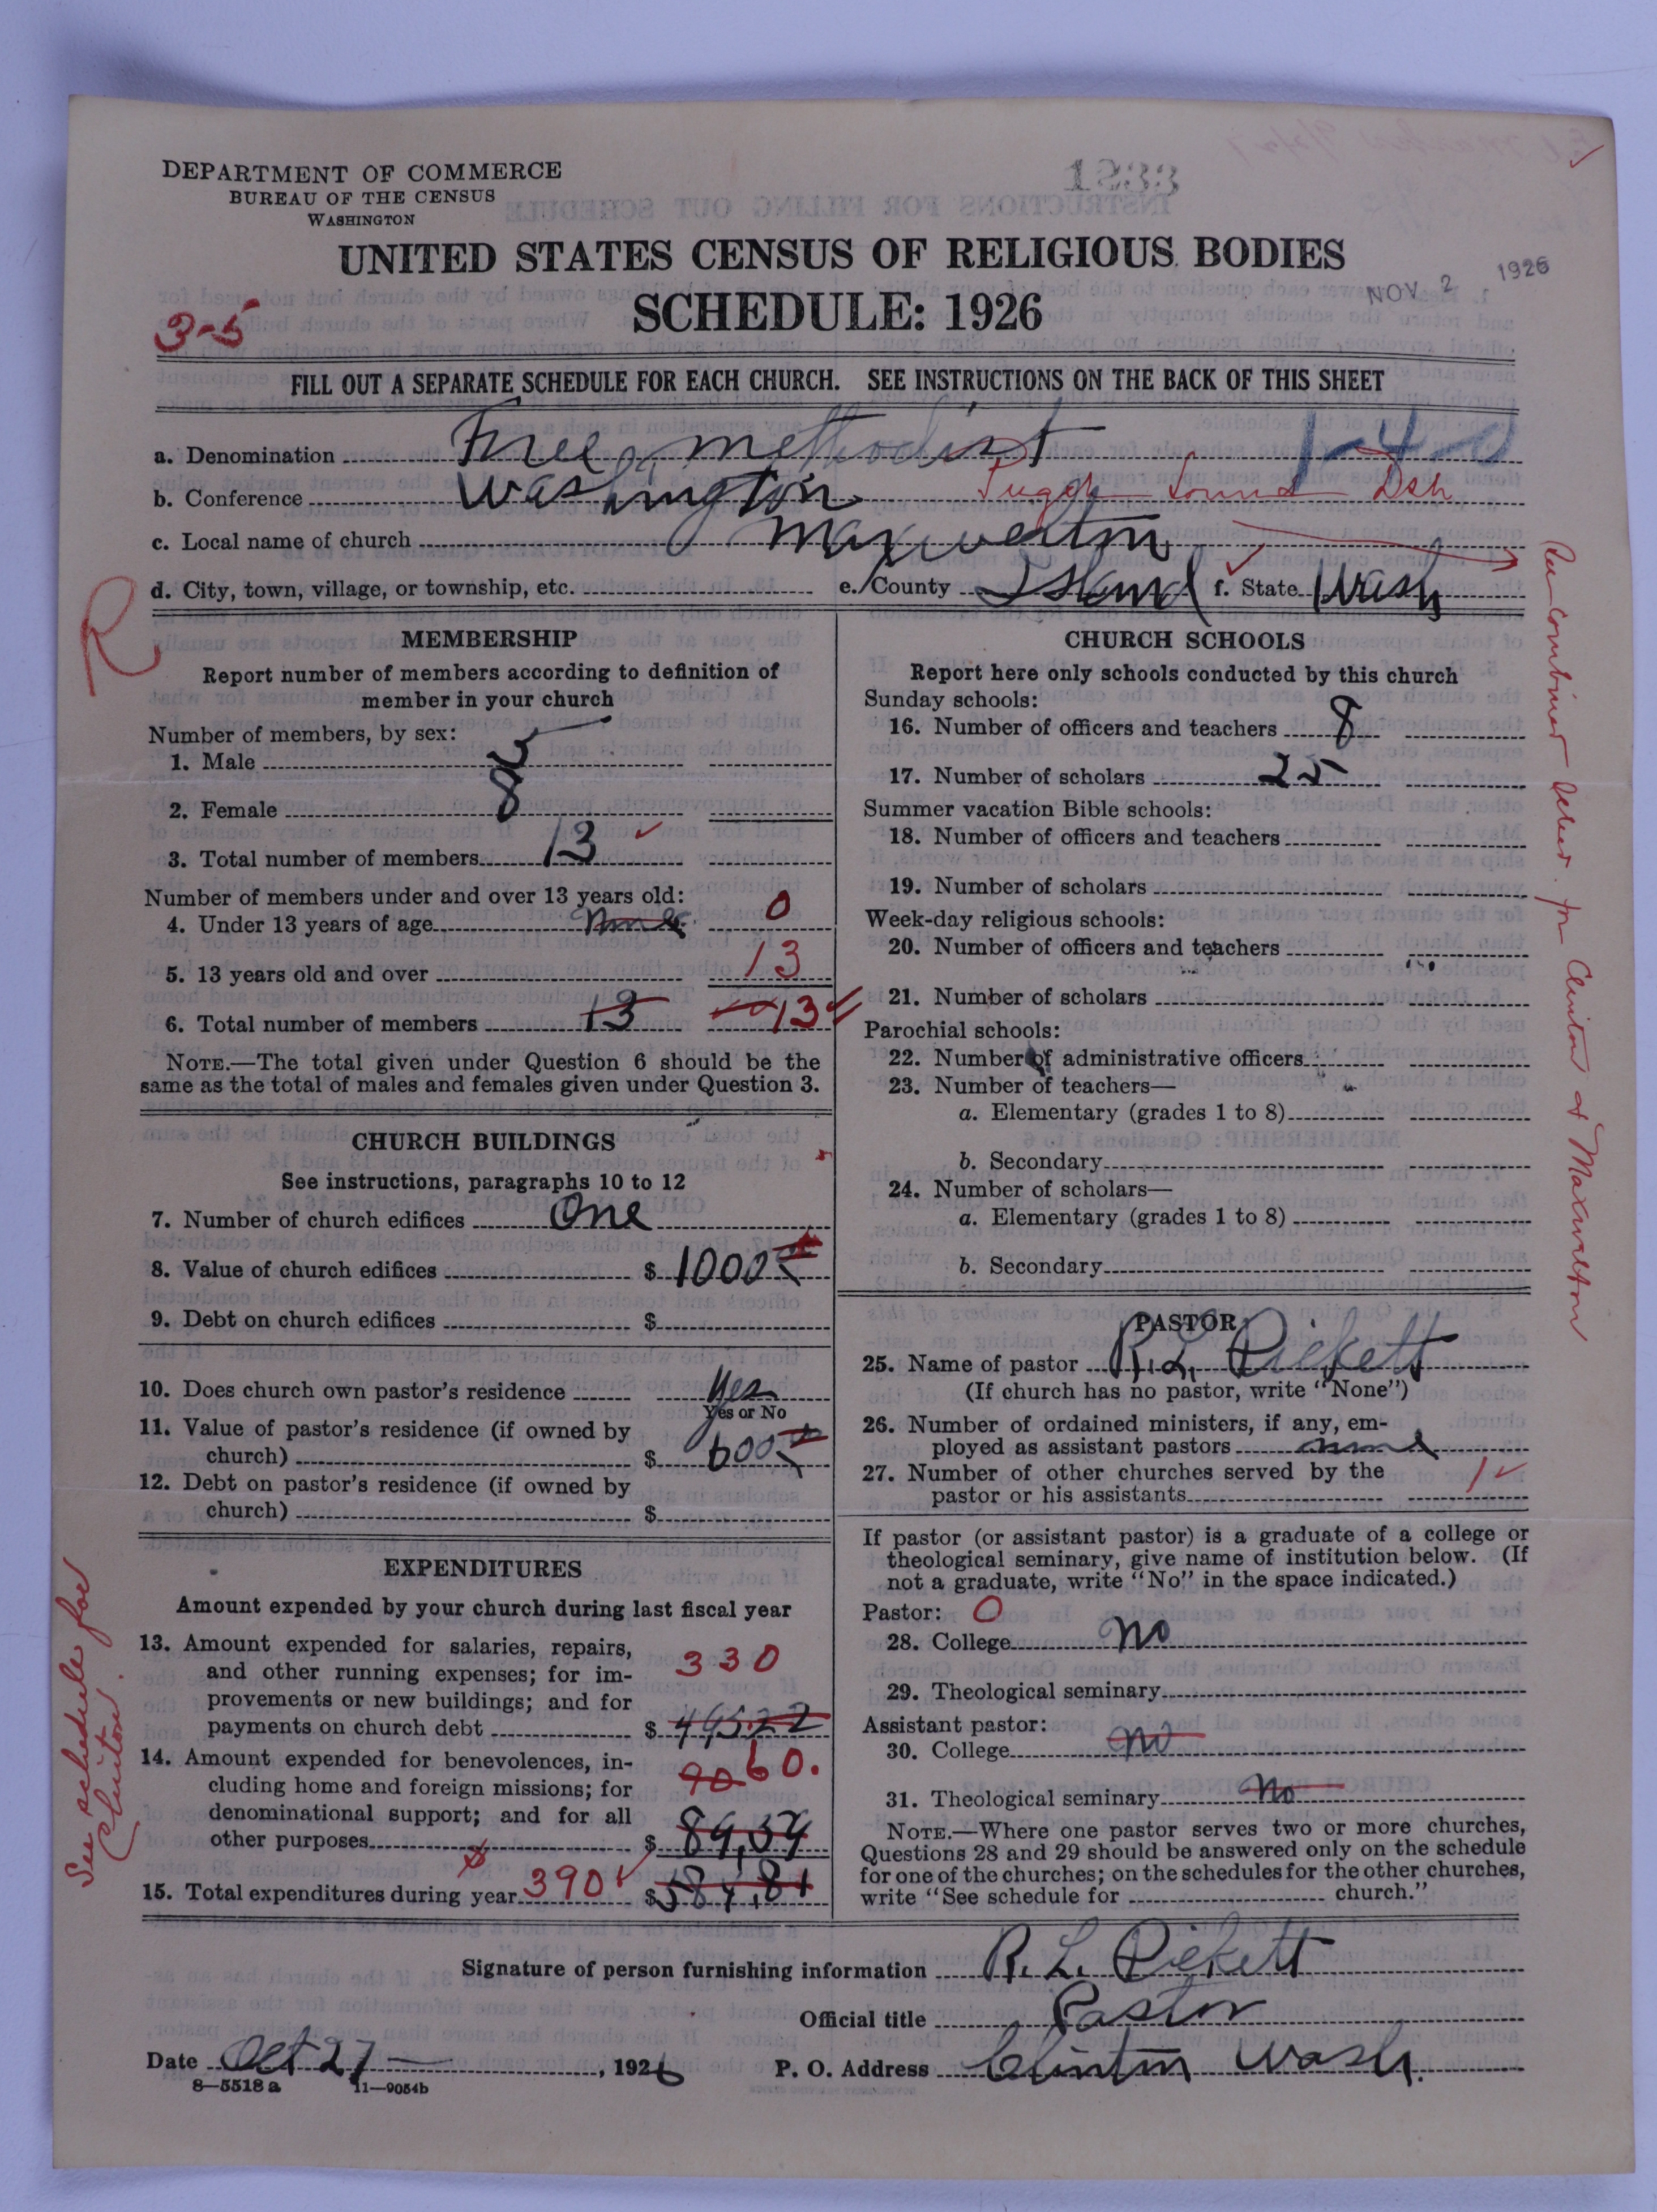 DEPARTMENT OF COMMERCE
BUREAU OF THE CENSUS
WASHINGTON
1233
UNITED STATES CENSUS OF RELIGIOUS BODIES
NOV 2 1926
SCHEDULE: 1926
3-5
FILL OUT A SEPARATE SCHEDULE FOR EACH CHURCH. SEE INSTRUCTIONS ON THE BACK OF THIS SHEET
a. Denomination Free Methodist 1-4-0
b. Conference Washington Puget Sound Dsh
c. Local name of church Maxwelton
d. City, town, village, or township, etc. e. County Island f. State Wash
R
MEMBERSHIP
Report number of members according to definition of
member in your church
Number of members, by sex:
1. Male 5
2. Female 8
3. Total number of members 13
Number of members under and over 13 years old:
4. Under 13 years of age none 0
5. 13 years old and over 13
6. Total number of members 13 13
NOTE.—The total given under Question 6 should be the
same as the total of males and females given under Question 3.
CHURCH BUILDINGS
See instructions, paragraphs 10 to 12
7. Number of church edifices One
8. Value of church edifices $ 1000
9. Debt on church edifices $
10. Does church own pastor's residence Yes
Yes or No
11. Value of pastor's residence (if owned by
church) $ 600
12. Debt on pastor's residence (if owned by
church) $
EXPENDITURES
Amount expended by your church during last fiscal year
13. Amount expended for salaries, repairs,
and other running expenses; for im-
provements or new buildings; and for
330
payments on church debt $ 495.22
14. Amount expended for benevolences, in-
cluding home and foreign missions; for
90 60.
denominational support; and for all
other purposes $ 89,59
15. Total expenditures during year 390 $ 584.81
See schedule for
Clinton.
CHURCH SCHOOLS
Report here only schools conducted by this church
Sunday schools:
16. Number of officers and teachers 8
17. Number of scholars 25
Summer vacation Bible schools:
18. Number of officers and teachers
19. Number of scholars
Week-day religious schools:
20. Number of officers and teachers
21. Number of scholars
Parochial schools:
22. Number of administrative officers
23. Number of teachers—
a. Elementary (grades 1 to 8)
b. Secondary
24. Number of scholars—
a. Elementary (grades 1 to 8)
b. Secondary
PASTOR
25. Name of pastor R. L. Pickett
(If church has no pastor, write "None")
26. Number of ordained ministers, if any, em-
ployed as assistant pastors none
27. Number of other churches served by the
pastor or his assistants 1
If pastor (or assistant pastor) is a graduate of a college or
theological seminary, give name of institution below. (If
not a graduate, write "No" in the space indicated.)
Pastor: 0
28. College No
29. Theological seminary
Assistant pastor:
30. College No
31. Theological seminary No
NOTE.—Where one pastor serves two or more churches,
Questions 28 and 29 should be answered only on the schedule
for one of the churches; on the schedules for the other churches,
write "See schedule for church."
See combined letter for Clinton & Maxwelton
Signature of person furnishing information R. L. Pickett
Official title Pastor
Date Oct 27, 1926 P. O. Address Clinton Wash.
8—5518 a 11—9054b